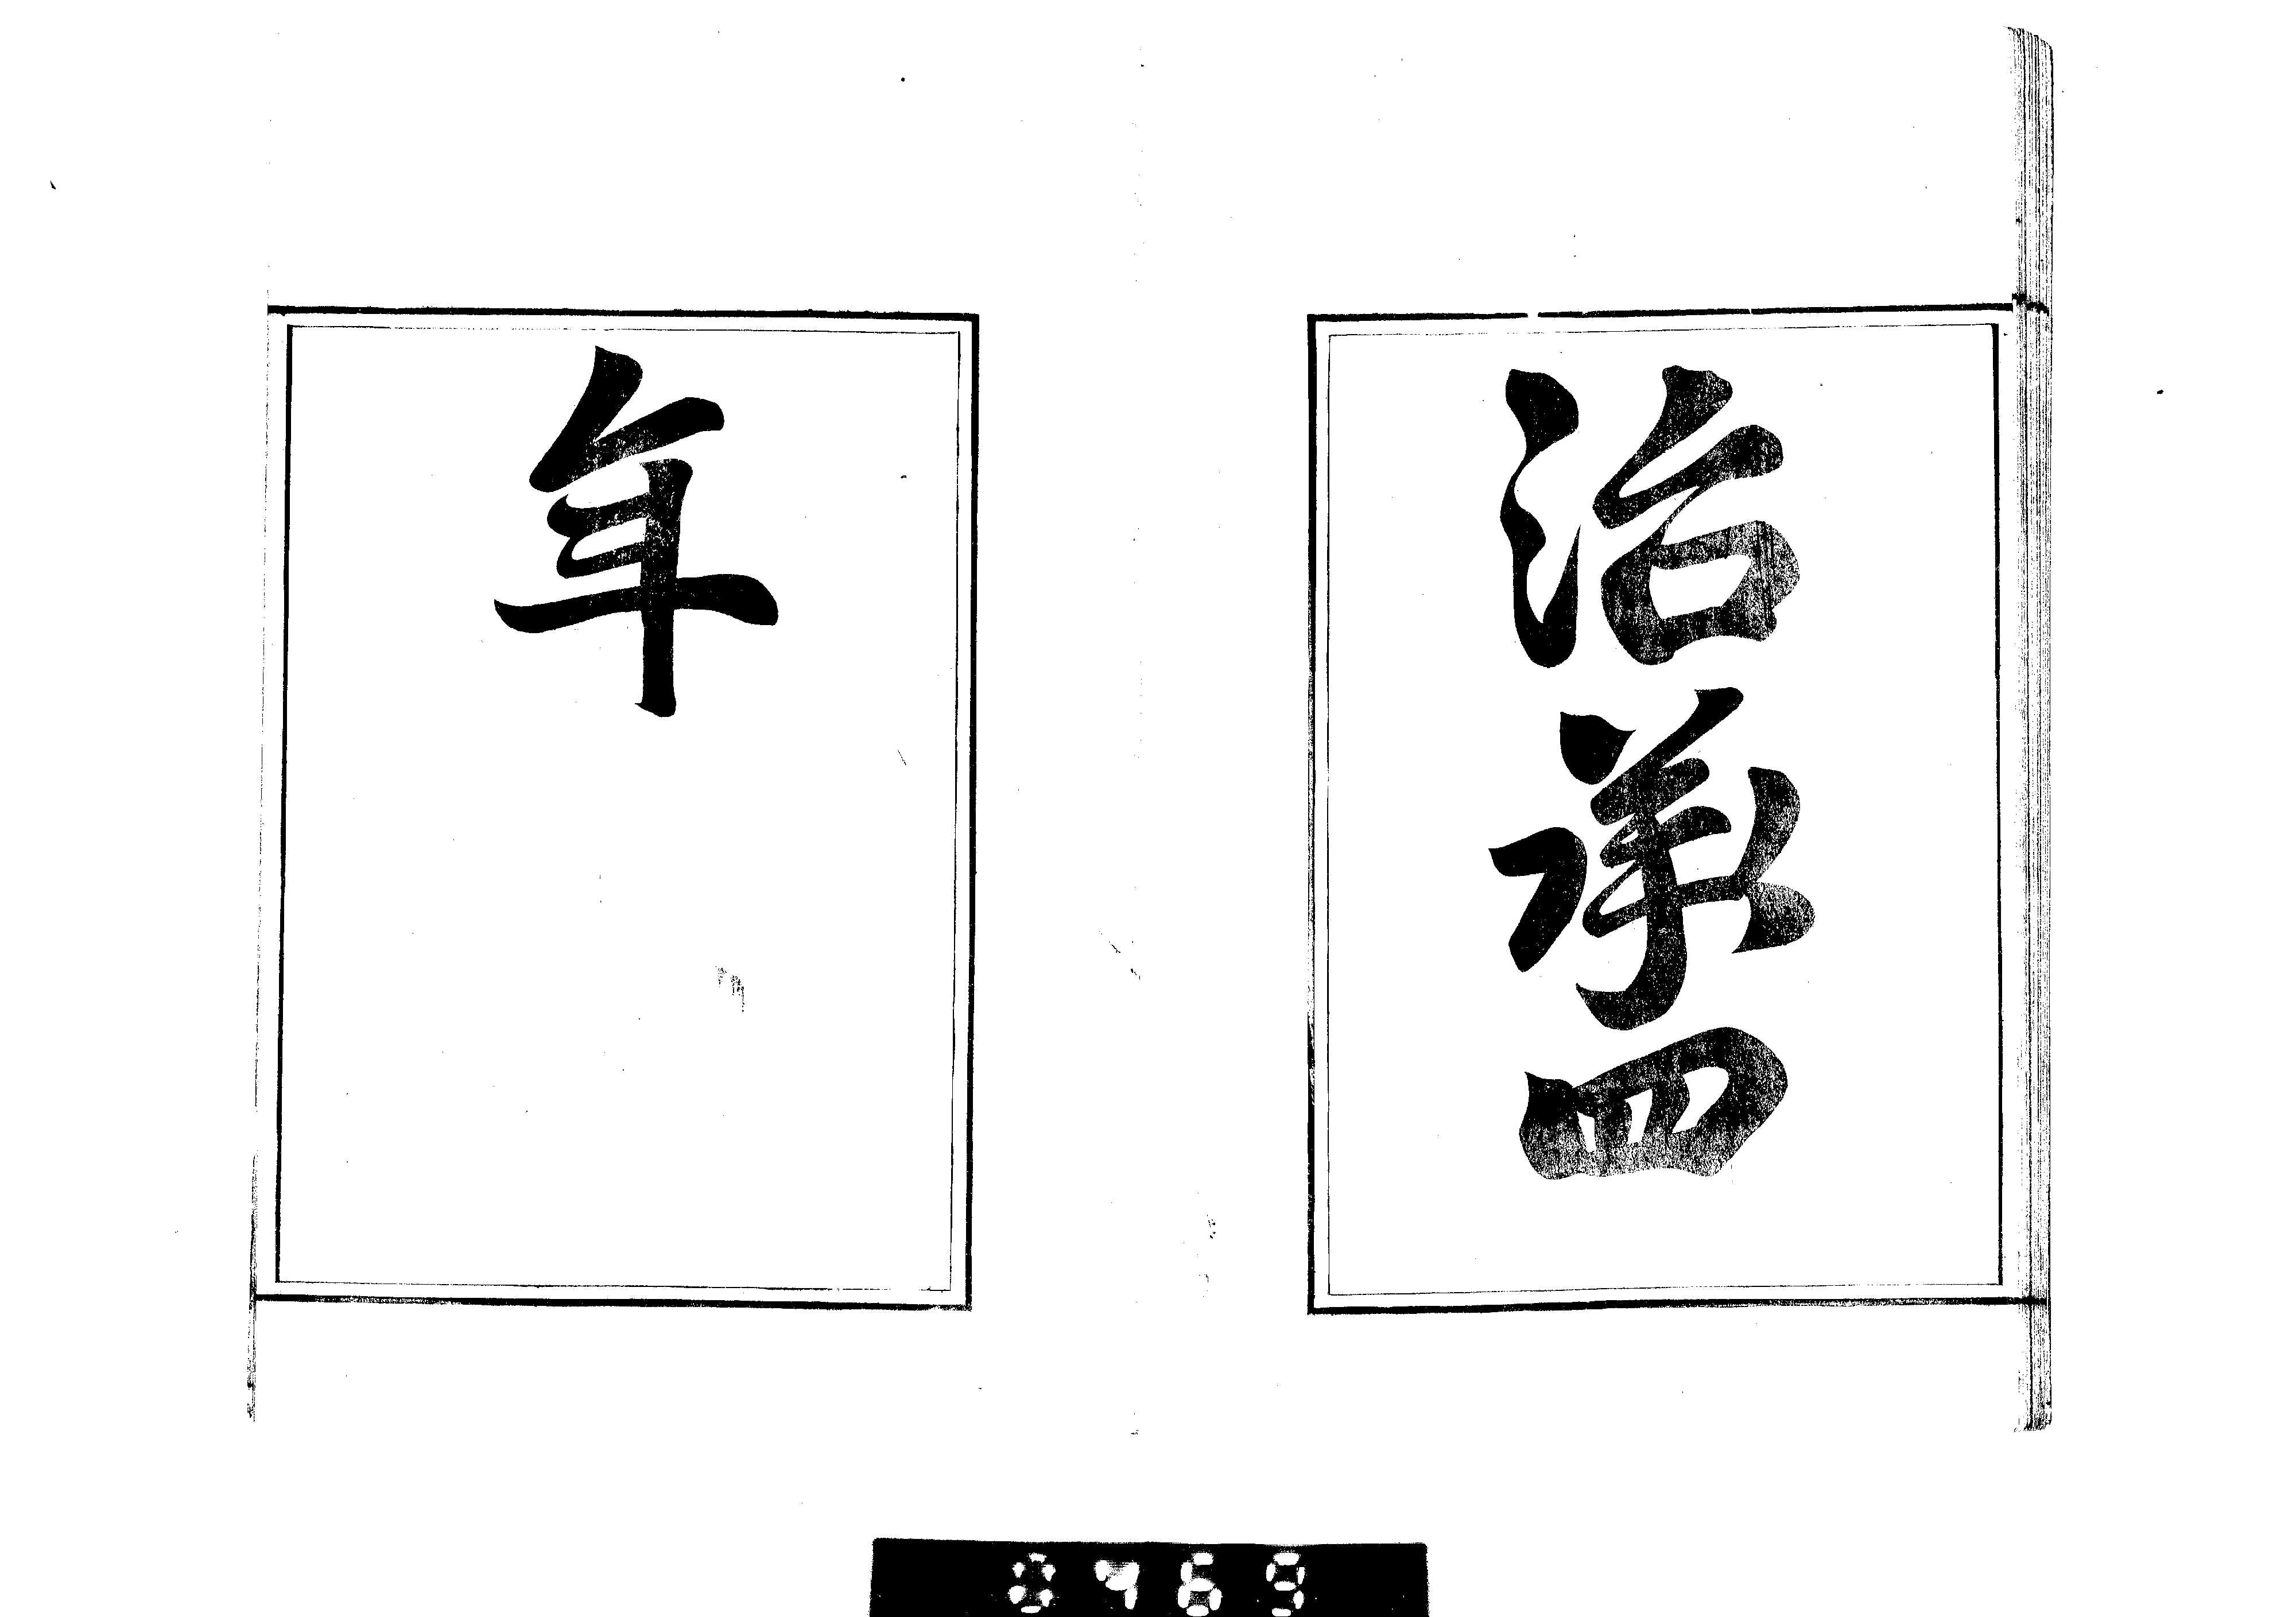 治承四
年